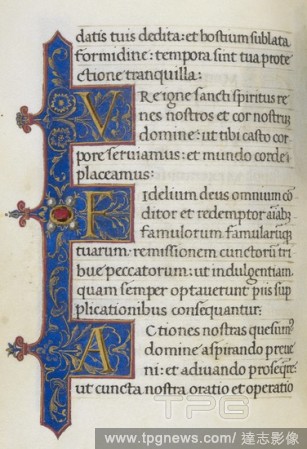 datis tuis dedita: et hostium sublata
formidine: tempora sint tua prote
ctione tranquilla:
VRe igne sancti spiritus re
nes nostros et cor nostrū
domine: ut tibi casto cor
pore seruiamus: et mundo corde
placeamus:
FIdelium deus omnium cō
ditor et redemptor aīabꝫ
famulorum famularūqꝫ
tuarum: remissionem cunctorū tri
bue peccatorum: ut indulgentiam
quam semper optauerunt piis sup
plicationibus consequantur:
ACtiones nostras quesumꝰ
domine aspirando preue
ni: et adiuuando proseqr̄e:
ut cuncta nostra oratio et operatio
TPG
www.tpgnews.com/達志影像